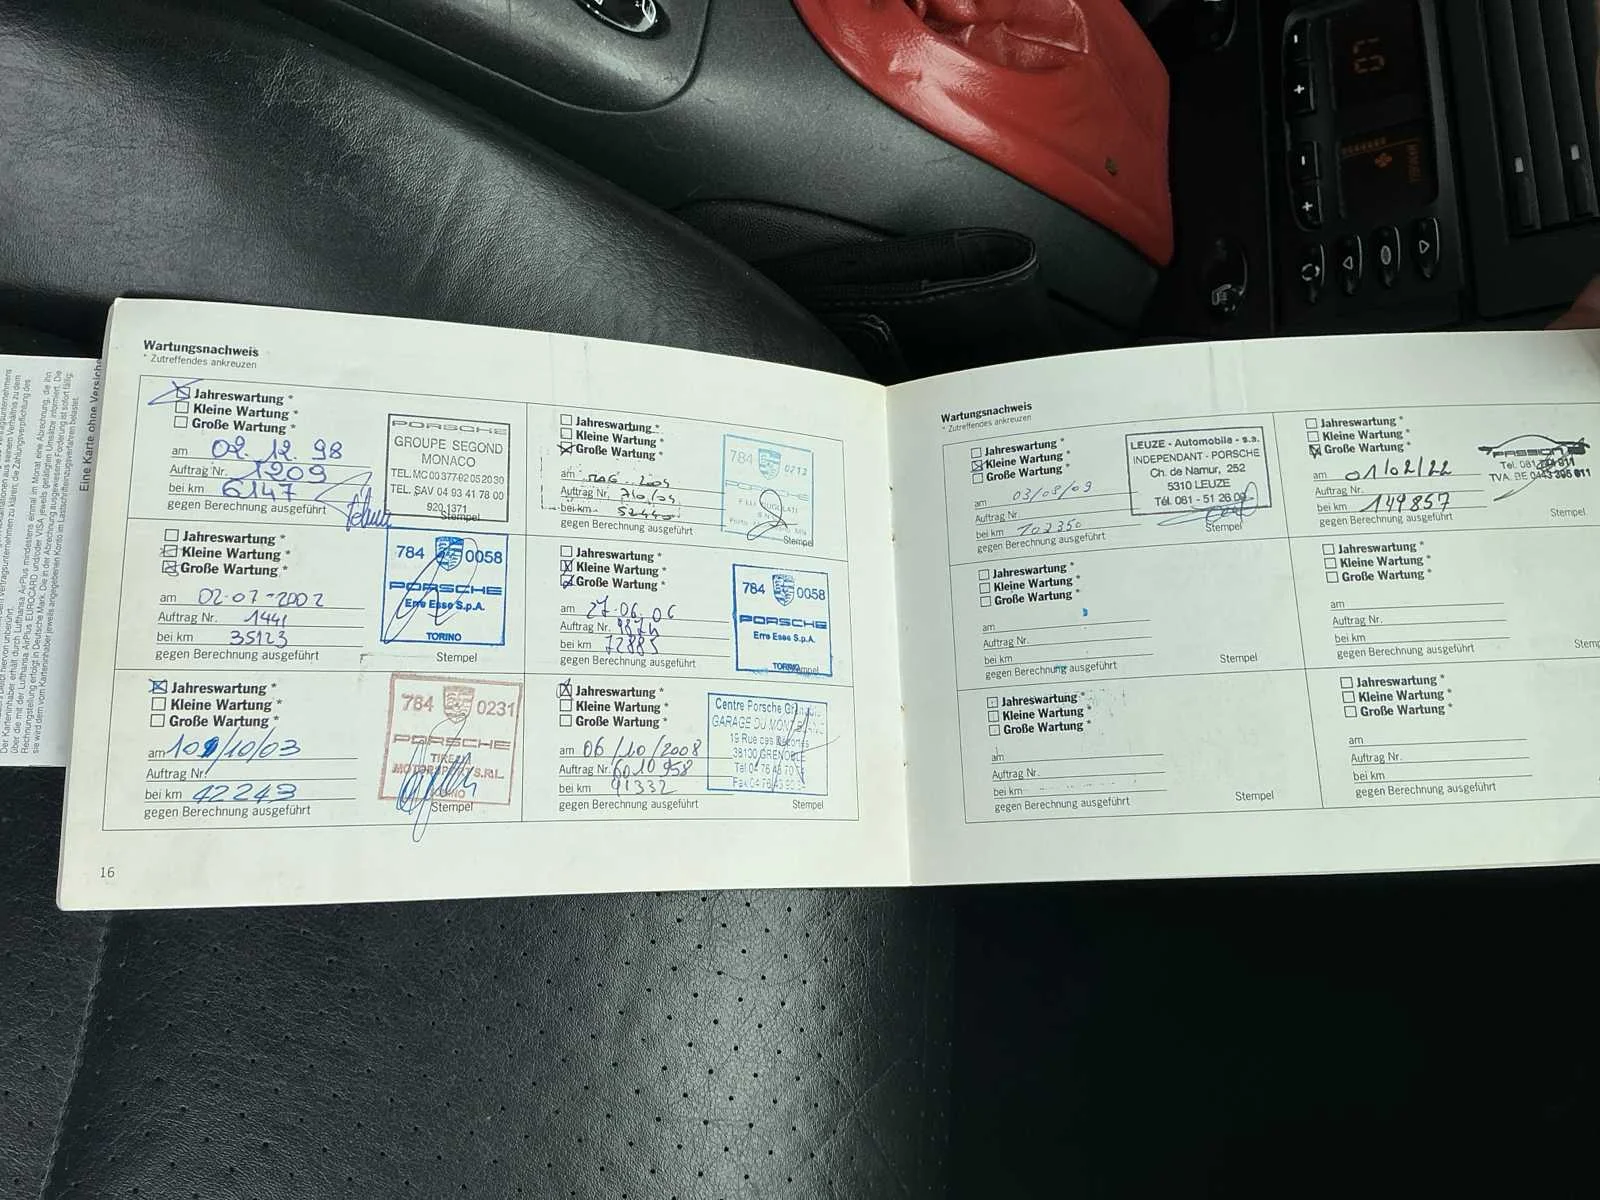 Eine Karte ohne Versiche
Wartungsnachweis
* Zutreffendes ankreuzen
Jahreswartung *
Kleine Wartung *
Große Wartung *
am 02.12.98
Auftrag Nr. 1209
bei km 6147
gegen Berechnung ausgeführt
PORSCHE
GROUPE SEGOND
MONACO
TEL. MC 00 377-92 05 20 30
TEL. SAV 04 93 41 78 00
920 1371
Stempel
Jahreswartung *
Kleine Wartung *
Große Wartung *
am 02-07-2002
Auftrag Nr. 1441
bei km 35123
gegen Berechnung ausgeführt
784 0058
PORSCHE
Erre Esse S.p.A.
TORINO
Stempel
Jahreswartung *
Kleine Wartung *
Große Wartung *
am 10/10/03
Auftrag Nr.
bei km 42243
gegen Berechnung ausgeführt
784 0231
PORSCHE
MOTORSPORT S.R.L.
Stempel
Jahreswartung *
Kleine Wartung *
Große Wartung *
am
Auftrag Nr.
bei km
gegen Berechnung ausgeführt
784 0213
PORSCHE
Stempel
Jahreswartung *
Kleine Wartung *
Große Wartung *
am 27.06.06
Auftrag Nr.
bei km 72885
gegen Berechnung ausgeführt
784 0058
PORSCHE
Erre Esse S.p.A.
TORINO
Stempel
Jahreswartung *
Kleine Wartung *
Große Wartung *
am 06/10/2008
Auftrag Nr. 6010958
bei km 91332
gegen Berechnung ausgeführt
Centre Porsche
GARAGE DU MONT
19 Rue des
38100 GRENOBLE
Stempel
16
Wartungsnachweis
* Zutreffendes ankreuzen
Jahreswartung *
Kleine Wartung *
Große Wartung *
am 03/08/09
Auftrag Nr.
bei km 102350
gegen Berechnung ausgeführt
LEUZE - Automobile - s.a.
INDEPENDANT - PORSCHE
Ch. de Namur, 252
5310 LEUZE
Tél. 081 - 51 26 09
Stempel
Jahreswartung *
Kleine Wartung *
Große Wartung *
am
Auftrag Nr.
bei km
gegen Berechnung ausgeführt
Stempel
Jahreswartung *
Kleine Wartung *
Große Wartung *
am
Auftrag Nr.
bei km
gegen Berechnung ausgeführt
Stempel
Jahreswartung *
Kleine Wartung *
Große Wartung *
am 01/02/22
Auftrag Nr.
bei km 149857
gegen Berechnung ausgeführt
PASSION
TVA. BE 0443 395 611
Stempel
Jahreswartung *
Kleine Wartung *
Große Wartung *
am
Auftrag Nr.
bei km
gegen Berechnung ausgeführt
Jahreswartung *
Kleine Wartung *
Große Wartung *
am
Auftrag Nr.
bei km
gegen Berechnung ausgeführt